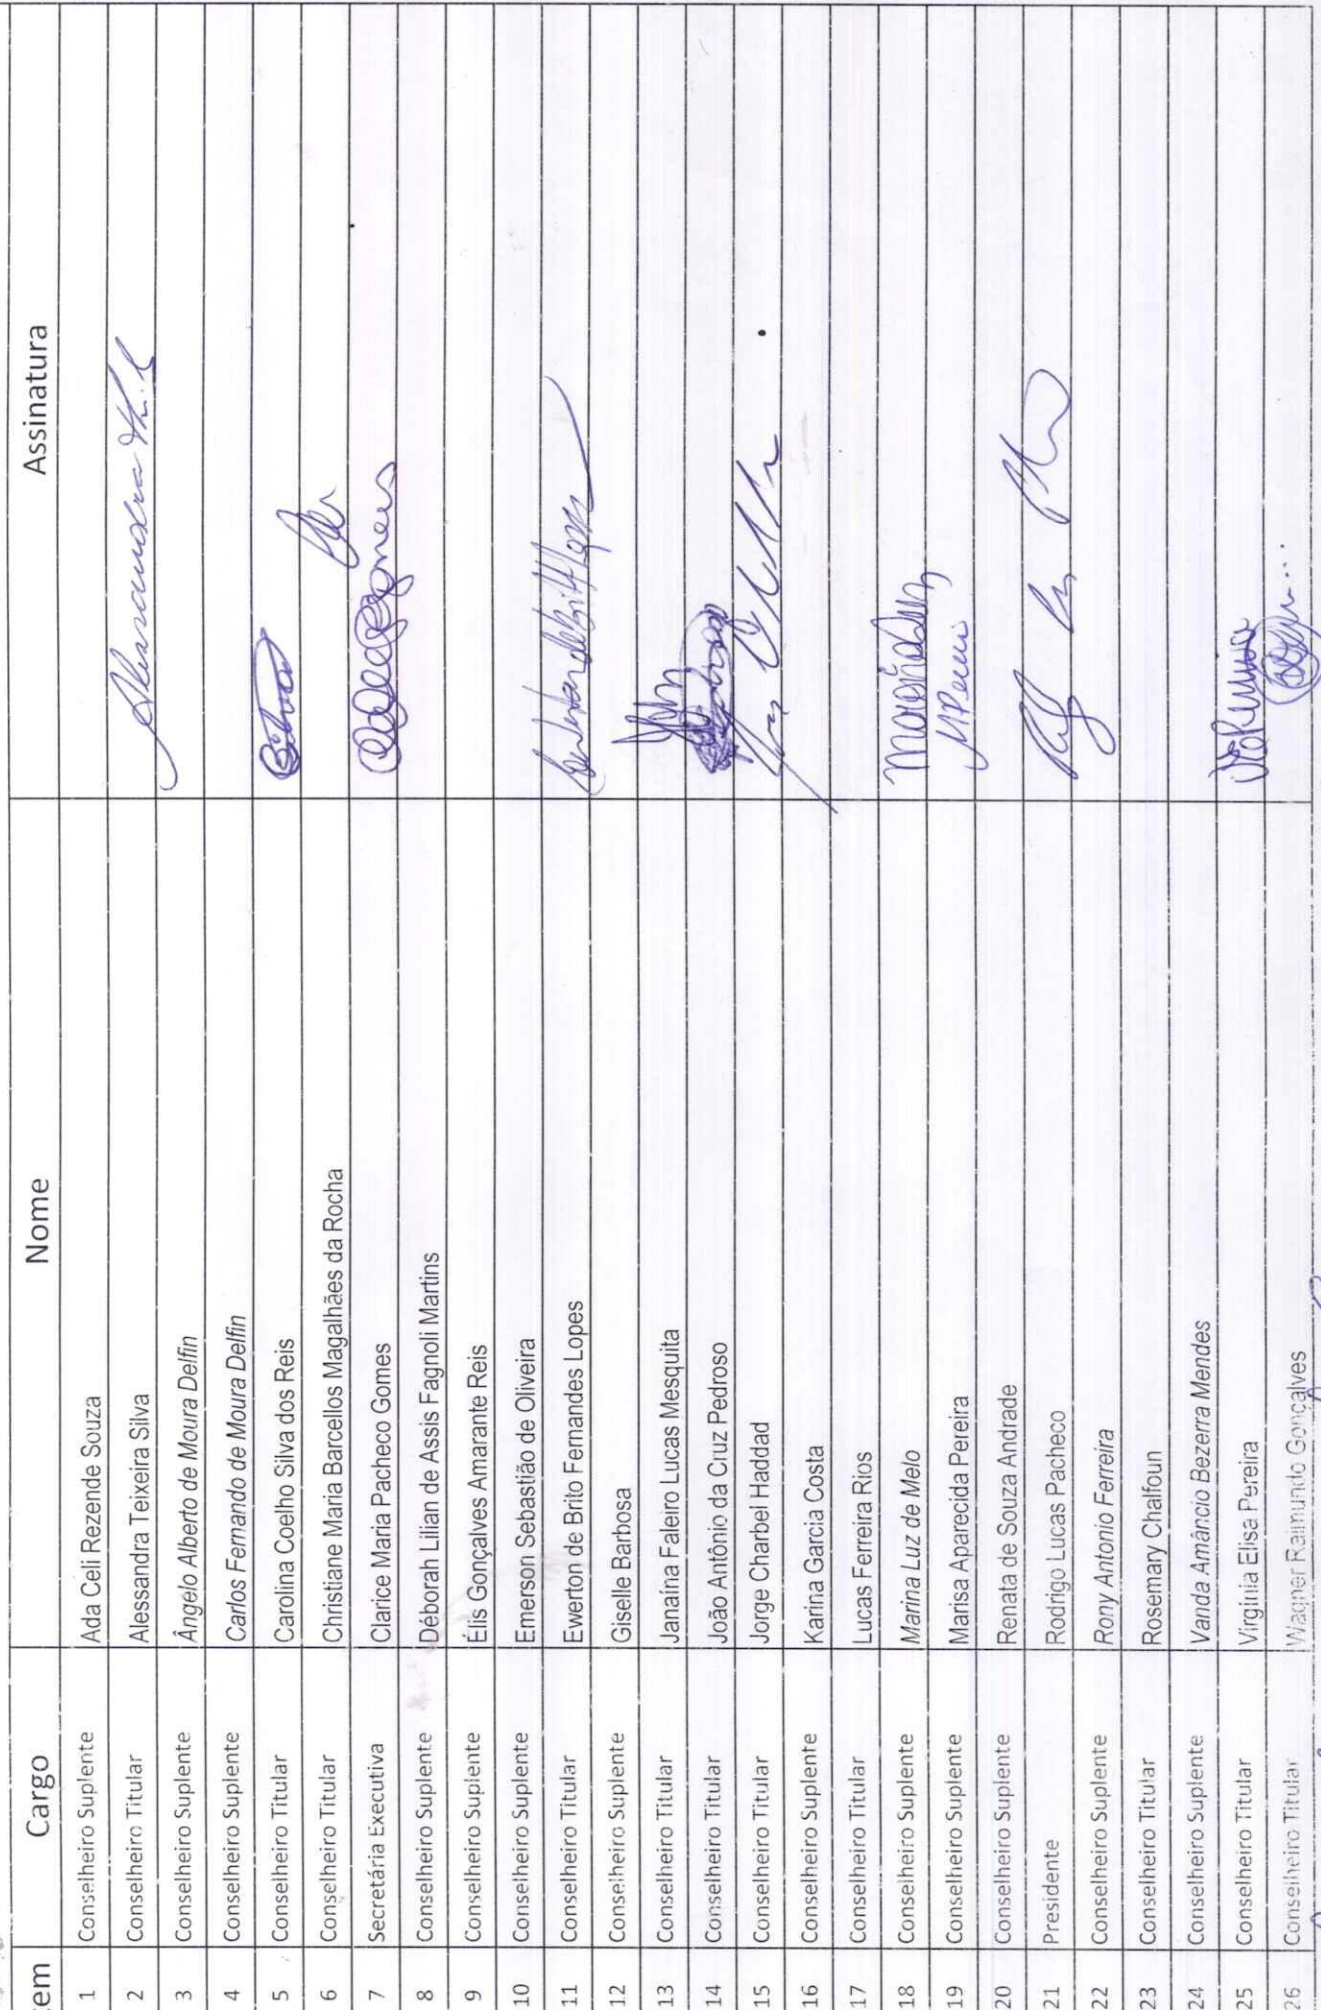 tem Cargo Nome Assinatura
1 Conselheiro Suplente Ada Celi Rezende Souza
2 Conselheiro Titular Alessandra Teixeira Silva
3 Conselheiro Suplente Ângelo Alberto de Moura Delfin
4 Conselheiro Suplente Carlos Fernando de Moura Delfin
5 Conselheiro Titular Carolina Coelho Silva dos Reis
6 Conselheiro Titular Christiane Maria Barcellos Magalhães da Rocha
7 Secretária Executiva Clarice Maria Pacheco Gomes
8 Conselheiro Suplente Déborah Lilian de Assis Fagnoli Martins
9 Conselheiro Suplente Élis Gonçalves Amarante Reis
10 Conselheiro Suplente Emerson Sebastião de Oliveira
11 Conselheiro Titular Ewerton de Brito Fernandes Lopes
12 Conselheiro Suplente Giselle Barbosa
13 Conselheiro Titular Janaína Faleiro Lucas Mesquita
14 Conselheiro Titular João Antônio da Cruz Pedroso
15 Conselheiro Titular Jorge Charbel Haddad
16 Conselheiro Suplente Karina Garcia Costa
17 Conselheiro Titular Lucas Ferreira Rios
18 Conselheiro Suplente Marina Luz de Melo
19 Conselheiro Titular Marisa Aparecida Pereira
20 Conselheiro Suplente Renata de Souza Andrade
21 Presidente Rodrigo Lucas Pacheco
22 Conselheiro Suplente Rony Antonio Ferreira
23 Conselheiro Titular Rosemary Chalfoun
24 Conselheiro Suplente Vanda Amâncio Bezerra Mendes
25 Conselheiro Titular Virgínia Elisa Pereira
26 Conselheiro Titular Wagner Raimundo Gonçalves